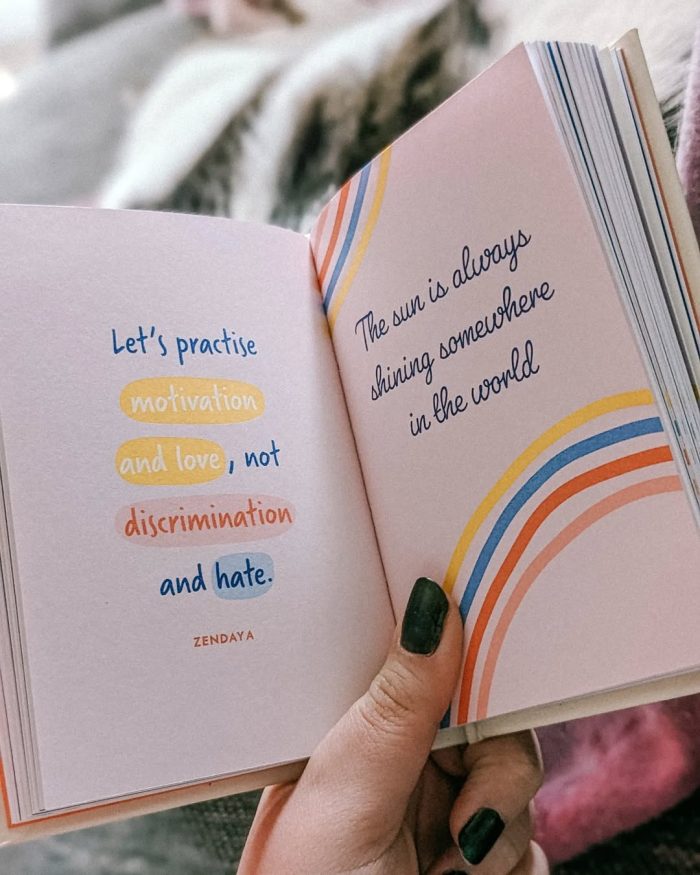 Let's practise
motivation
and love, not
discrimination
and hate.
ZENDAYA
The sun is always
shining somewhere
in the world